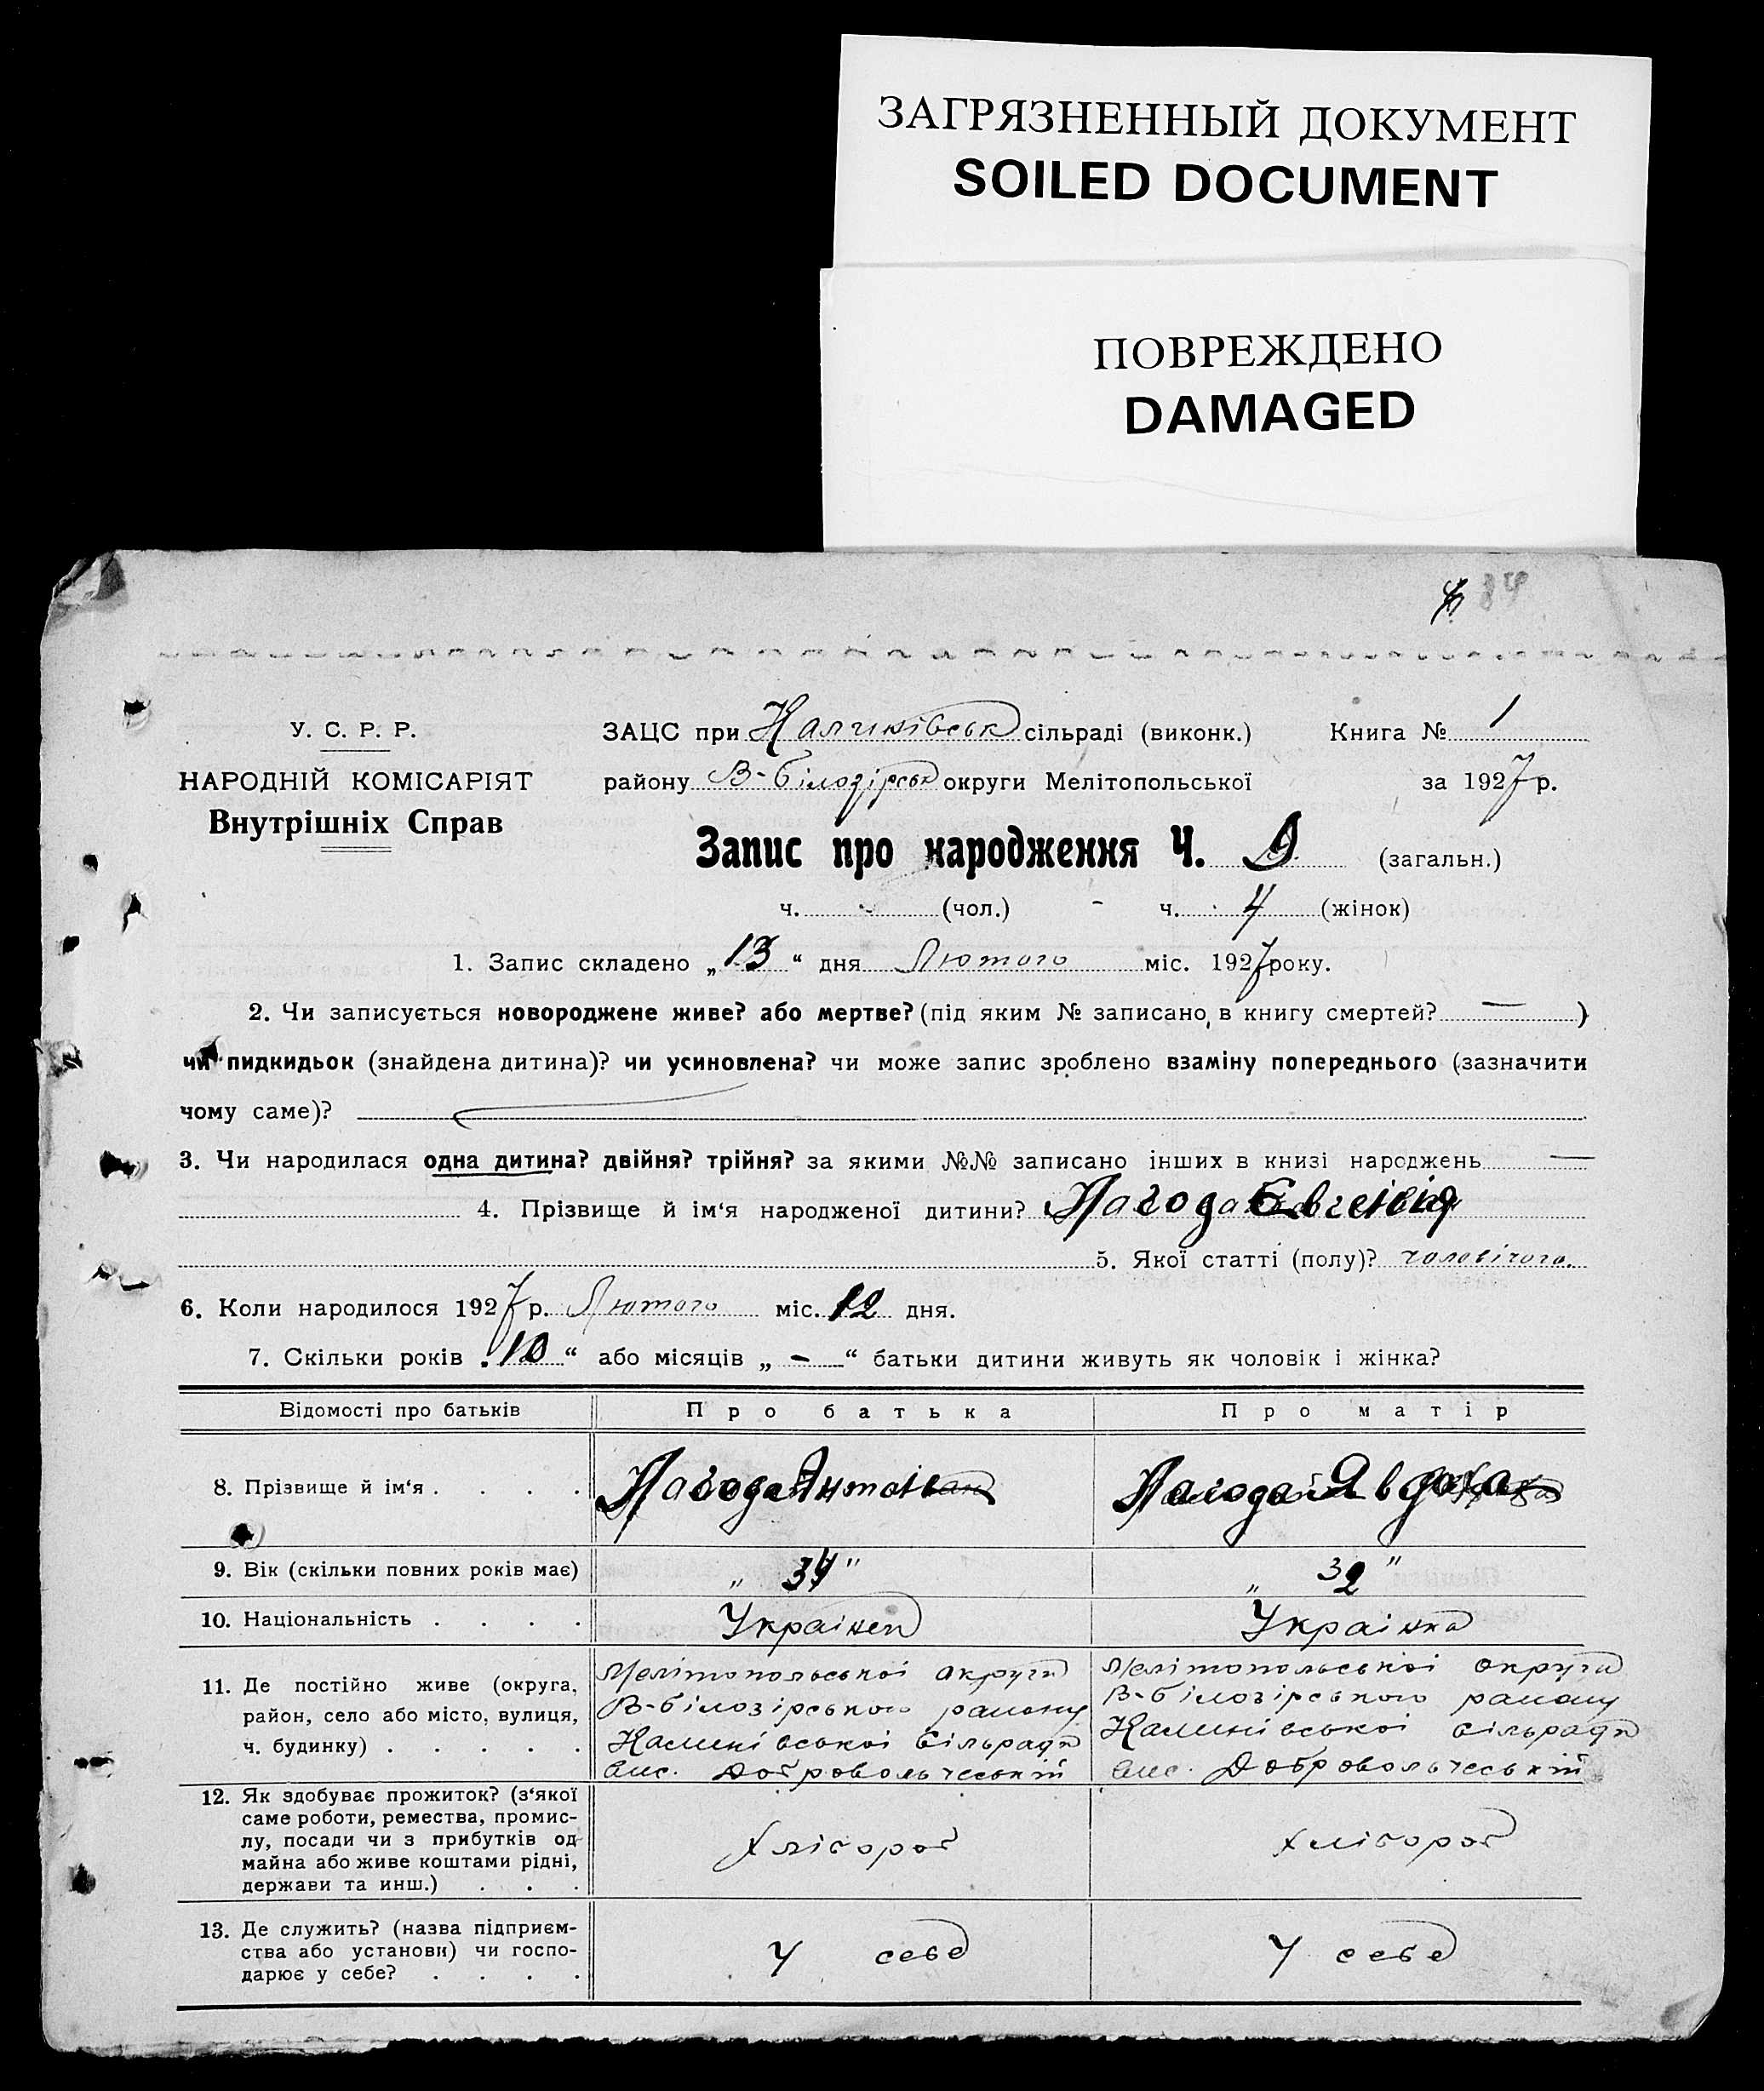 ЗАГРЯЗНЕННЫЙ ДОКУМЕНТ
SOILED DOCUMENT
ПОВРЕЖДЕНО
DAMAGED
84
У. С. Р. Р.
НАРОДНІЙ КОМІСАРІЯТ
Внутрішніх Справ
ЗАЦС при Калинівськ сільраді (виконк.) Книга № 1
району В-Білозірськ округи Мелітопольської за 1927 р.
Запис про народження Ч. 9 (загальн.)
ч. - (чол.) - ч. 4 (жінок)
1. Запис складено „13“ дня Лютого міс. 1927 року.
2. Чи записується новороджене живе? або мертве? (під яким № записано, в книгу смертей? — )
чи пидкидьок (знайдена дитина)? чи усиновлена? чи може запис зроблено взаміну попереднього (зазначити
чому саме)?
3. Чи народилася одна дитина? двійня? трійня? за якими №№ записано інших в книзі народжень —
4. Прізвище й ім‘я народженої дитини? Нагода Евгенія
5. Якої статті (полу)? чоловічого.
6. Коли народилося 1927 р. Лютого міс. 12 дня.
7. Скільки років „10“ або місяців „ - “ батьки дитини живуть як чоловік і жінка?
Відомості про батьків Про батька Про матір
8. Прізвище й ім‘я . . . . Нагода Антон Нагода Явдоха
9. Вік (скільки повних років має) „ 34 " „ 32 "
10. Національність . . . . Українец Українка
11. Де постійно живе (округа,
район, село або місто, вулиця,
ч. будинку) . . . . .
Мелітопольської округи
В-Білозірського району
Калинівської Сільради
вис. Добровольчеський
Мелітопольської округи
В-Білозірського району
Калинівської сільради
вис. Добровольчеський
12. Як здобуває прожиток? (з‘якої
саме роботи, ремества, промис-
лу, посади чи з прибутків од
майна або живе коштами рідні,
держави та инш.) . . .
Хлібороб Хлібороб
13. Де служить? (назва підприєм-
ства або установи) чи госпо-
дарює у себе? . . . .
У себе У себе